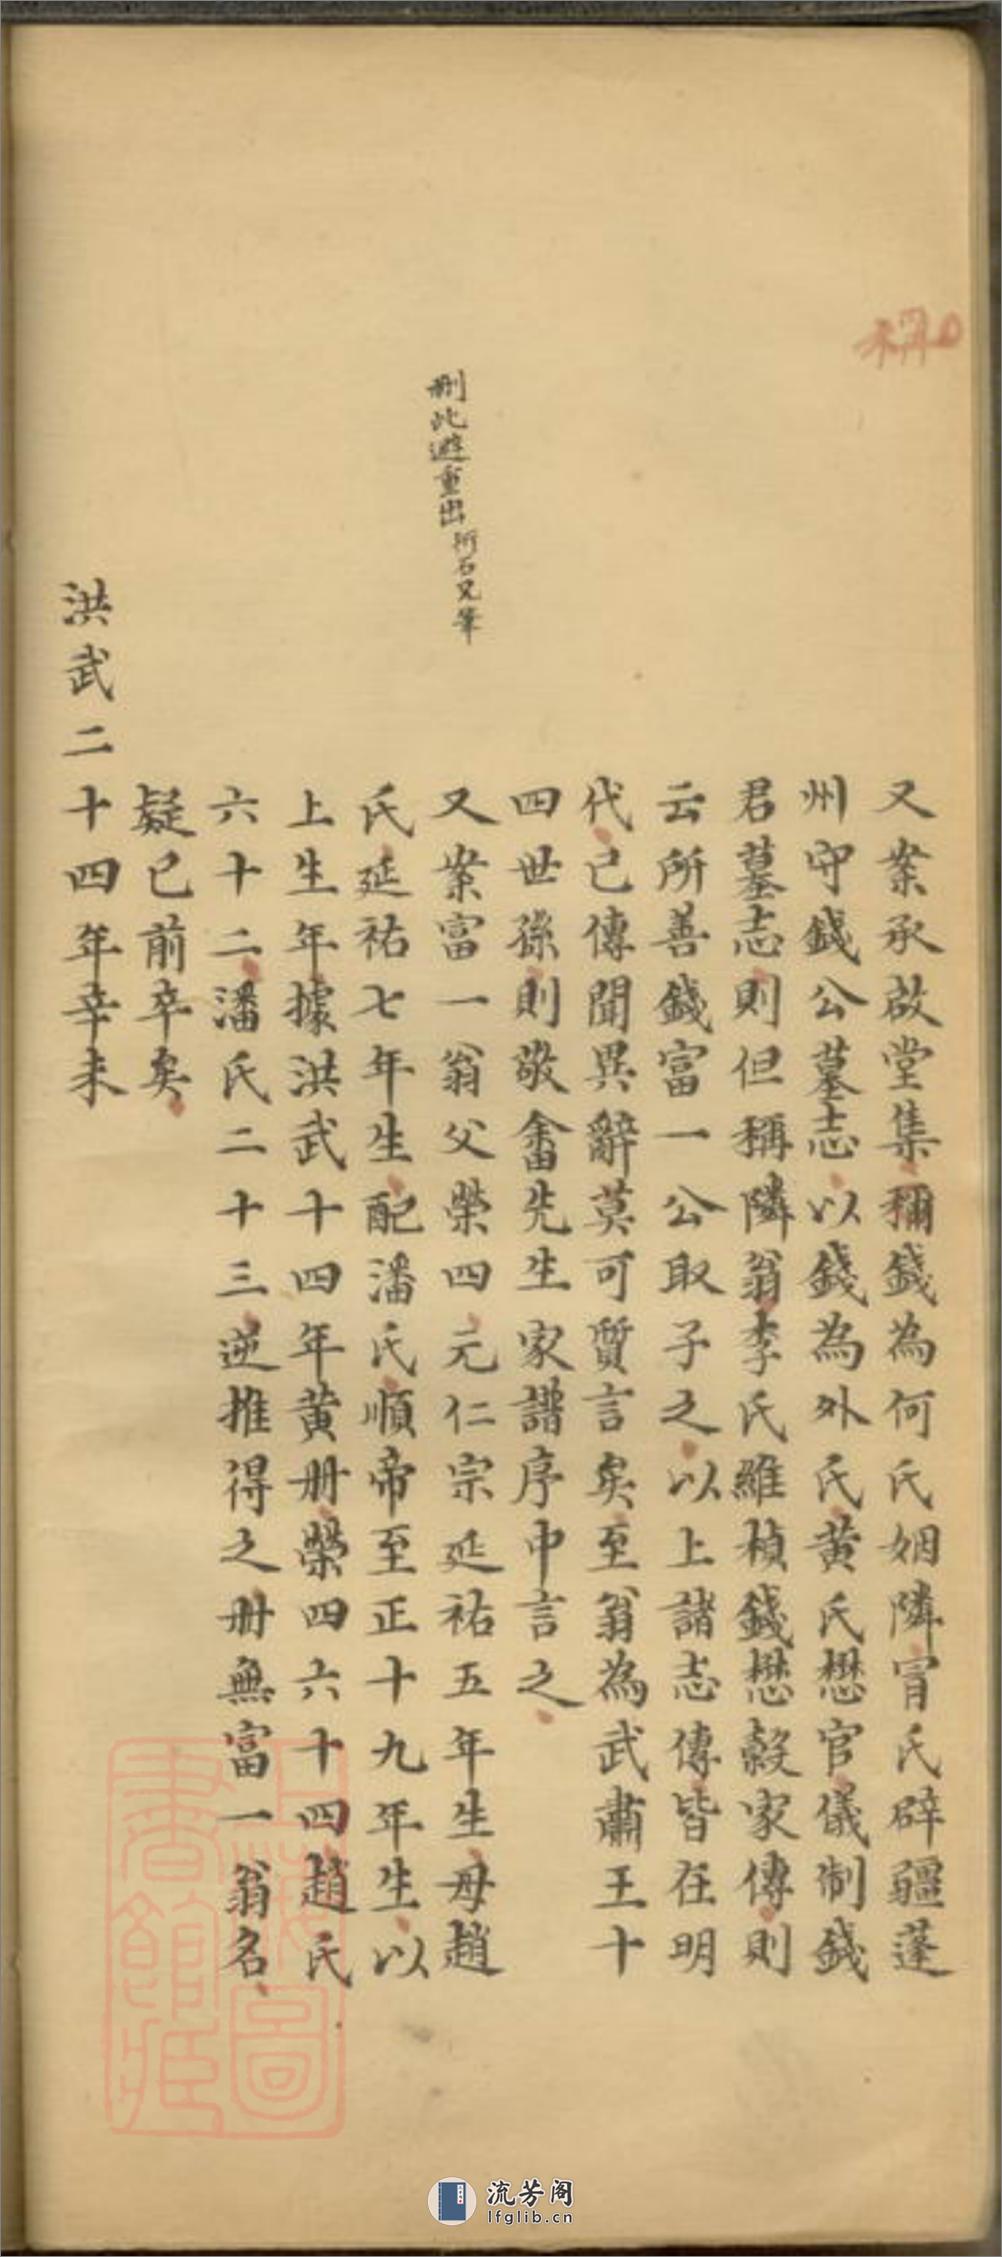 稱
又案承啟堂集稱錢為何氏姻隣甯氏辟疆蓬
州守錢公墓志以錢為外氏黃氏懋官儀制錢
君墓志則但稱隣翁李氏維楨錢懋穀家傳則
云所善錢富一公取子之以上諸志傳皆在明
代已傳聞異辭莫可質言矣至翁為武肅王十
四世孫則敬畬先生家譜序中言之
刪此避重出衎石兄筆
又案富一翁父榮四元仁宗延祐五年生母趙
氏延祐七年生配潘氏順帝至正十九年生以
上生年據洪武十四年黃册榮四六十四趙氏
六十二潘氏二十三逆推得之册無富一翁名
疑已前卒矣
洪武二十四年辛未
上海圖
書館藏
流芳阁
lfglib.cn